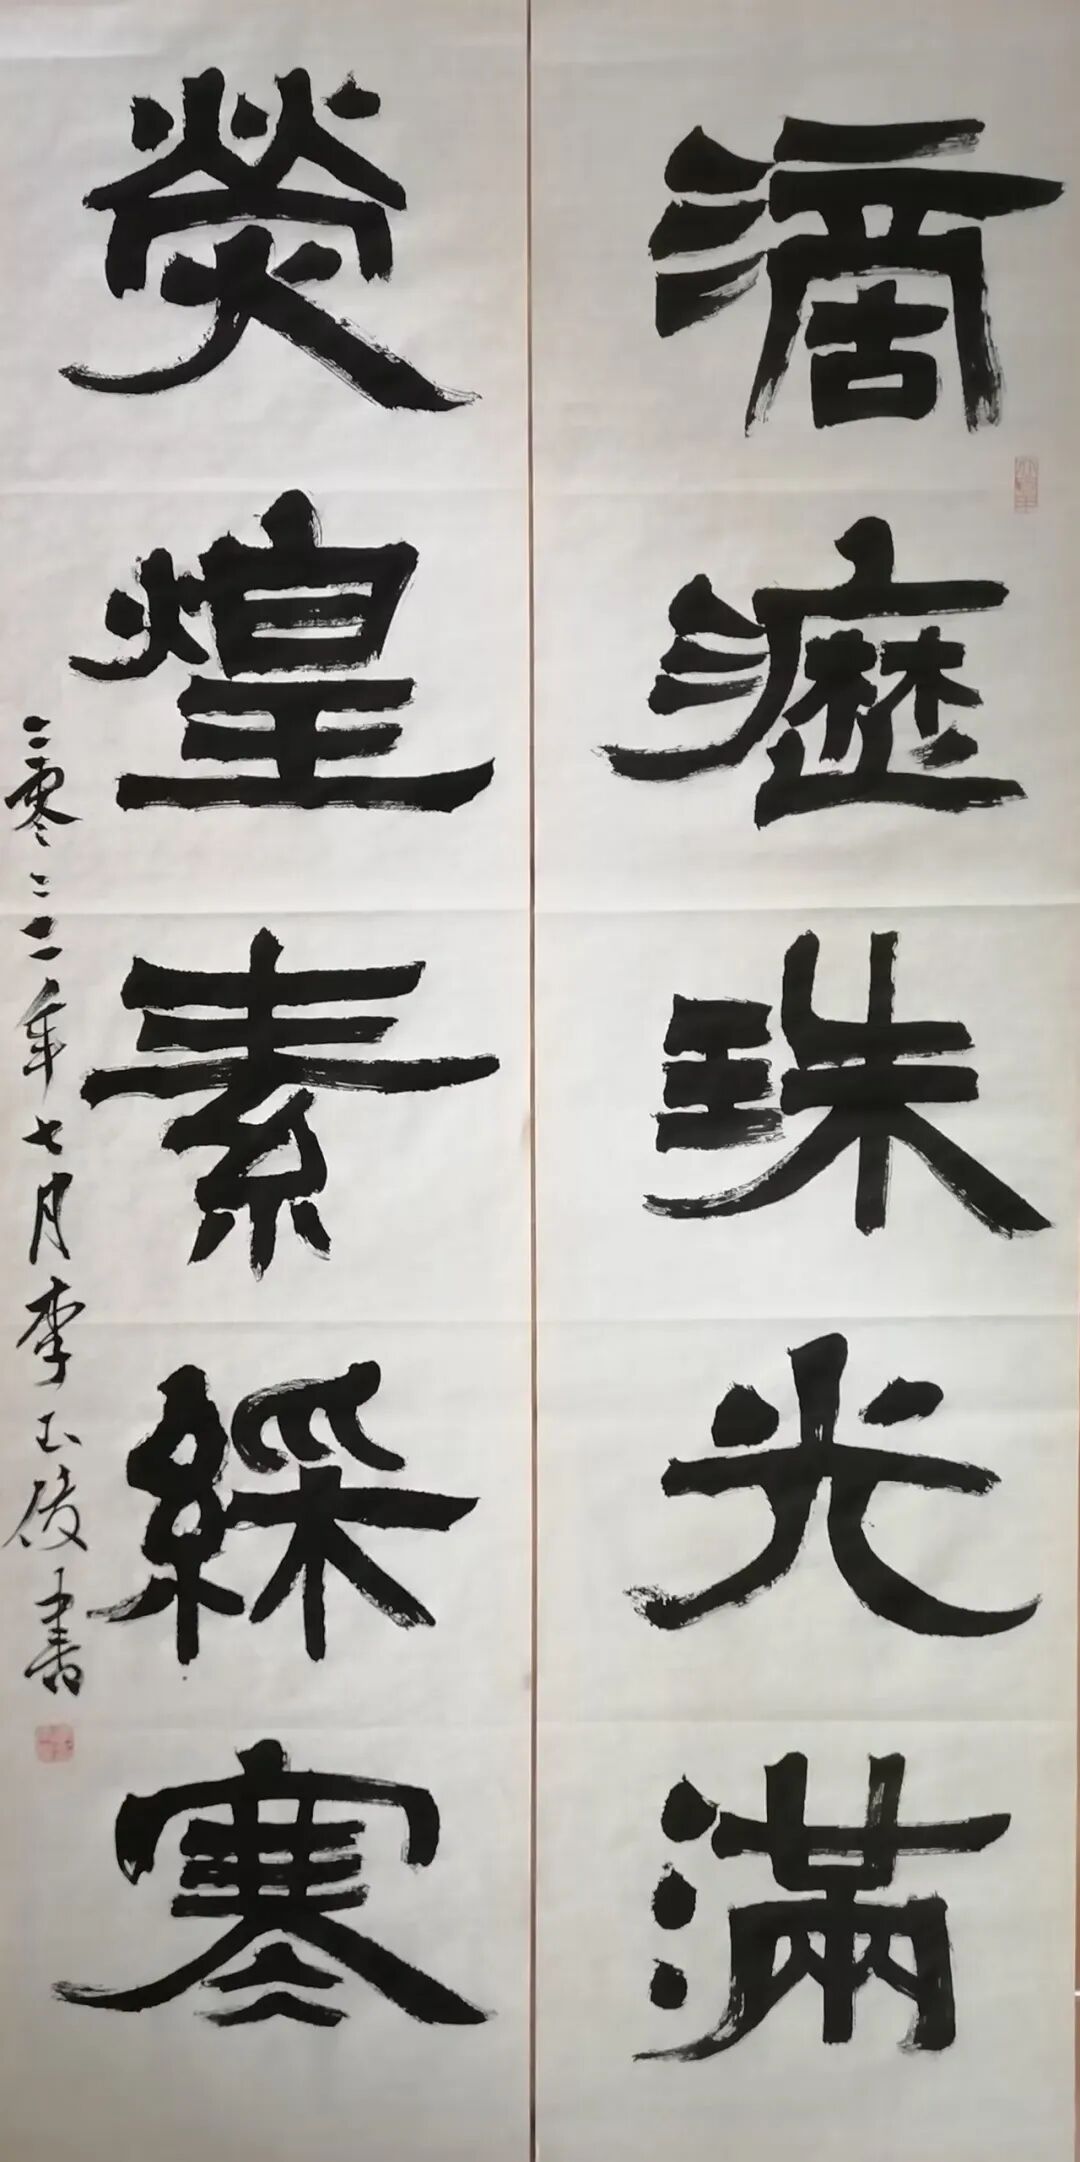 滴瀝珠光滿
熒煌素綵寒
二零二二年七月李玉書